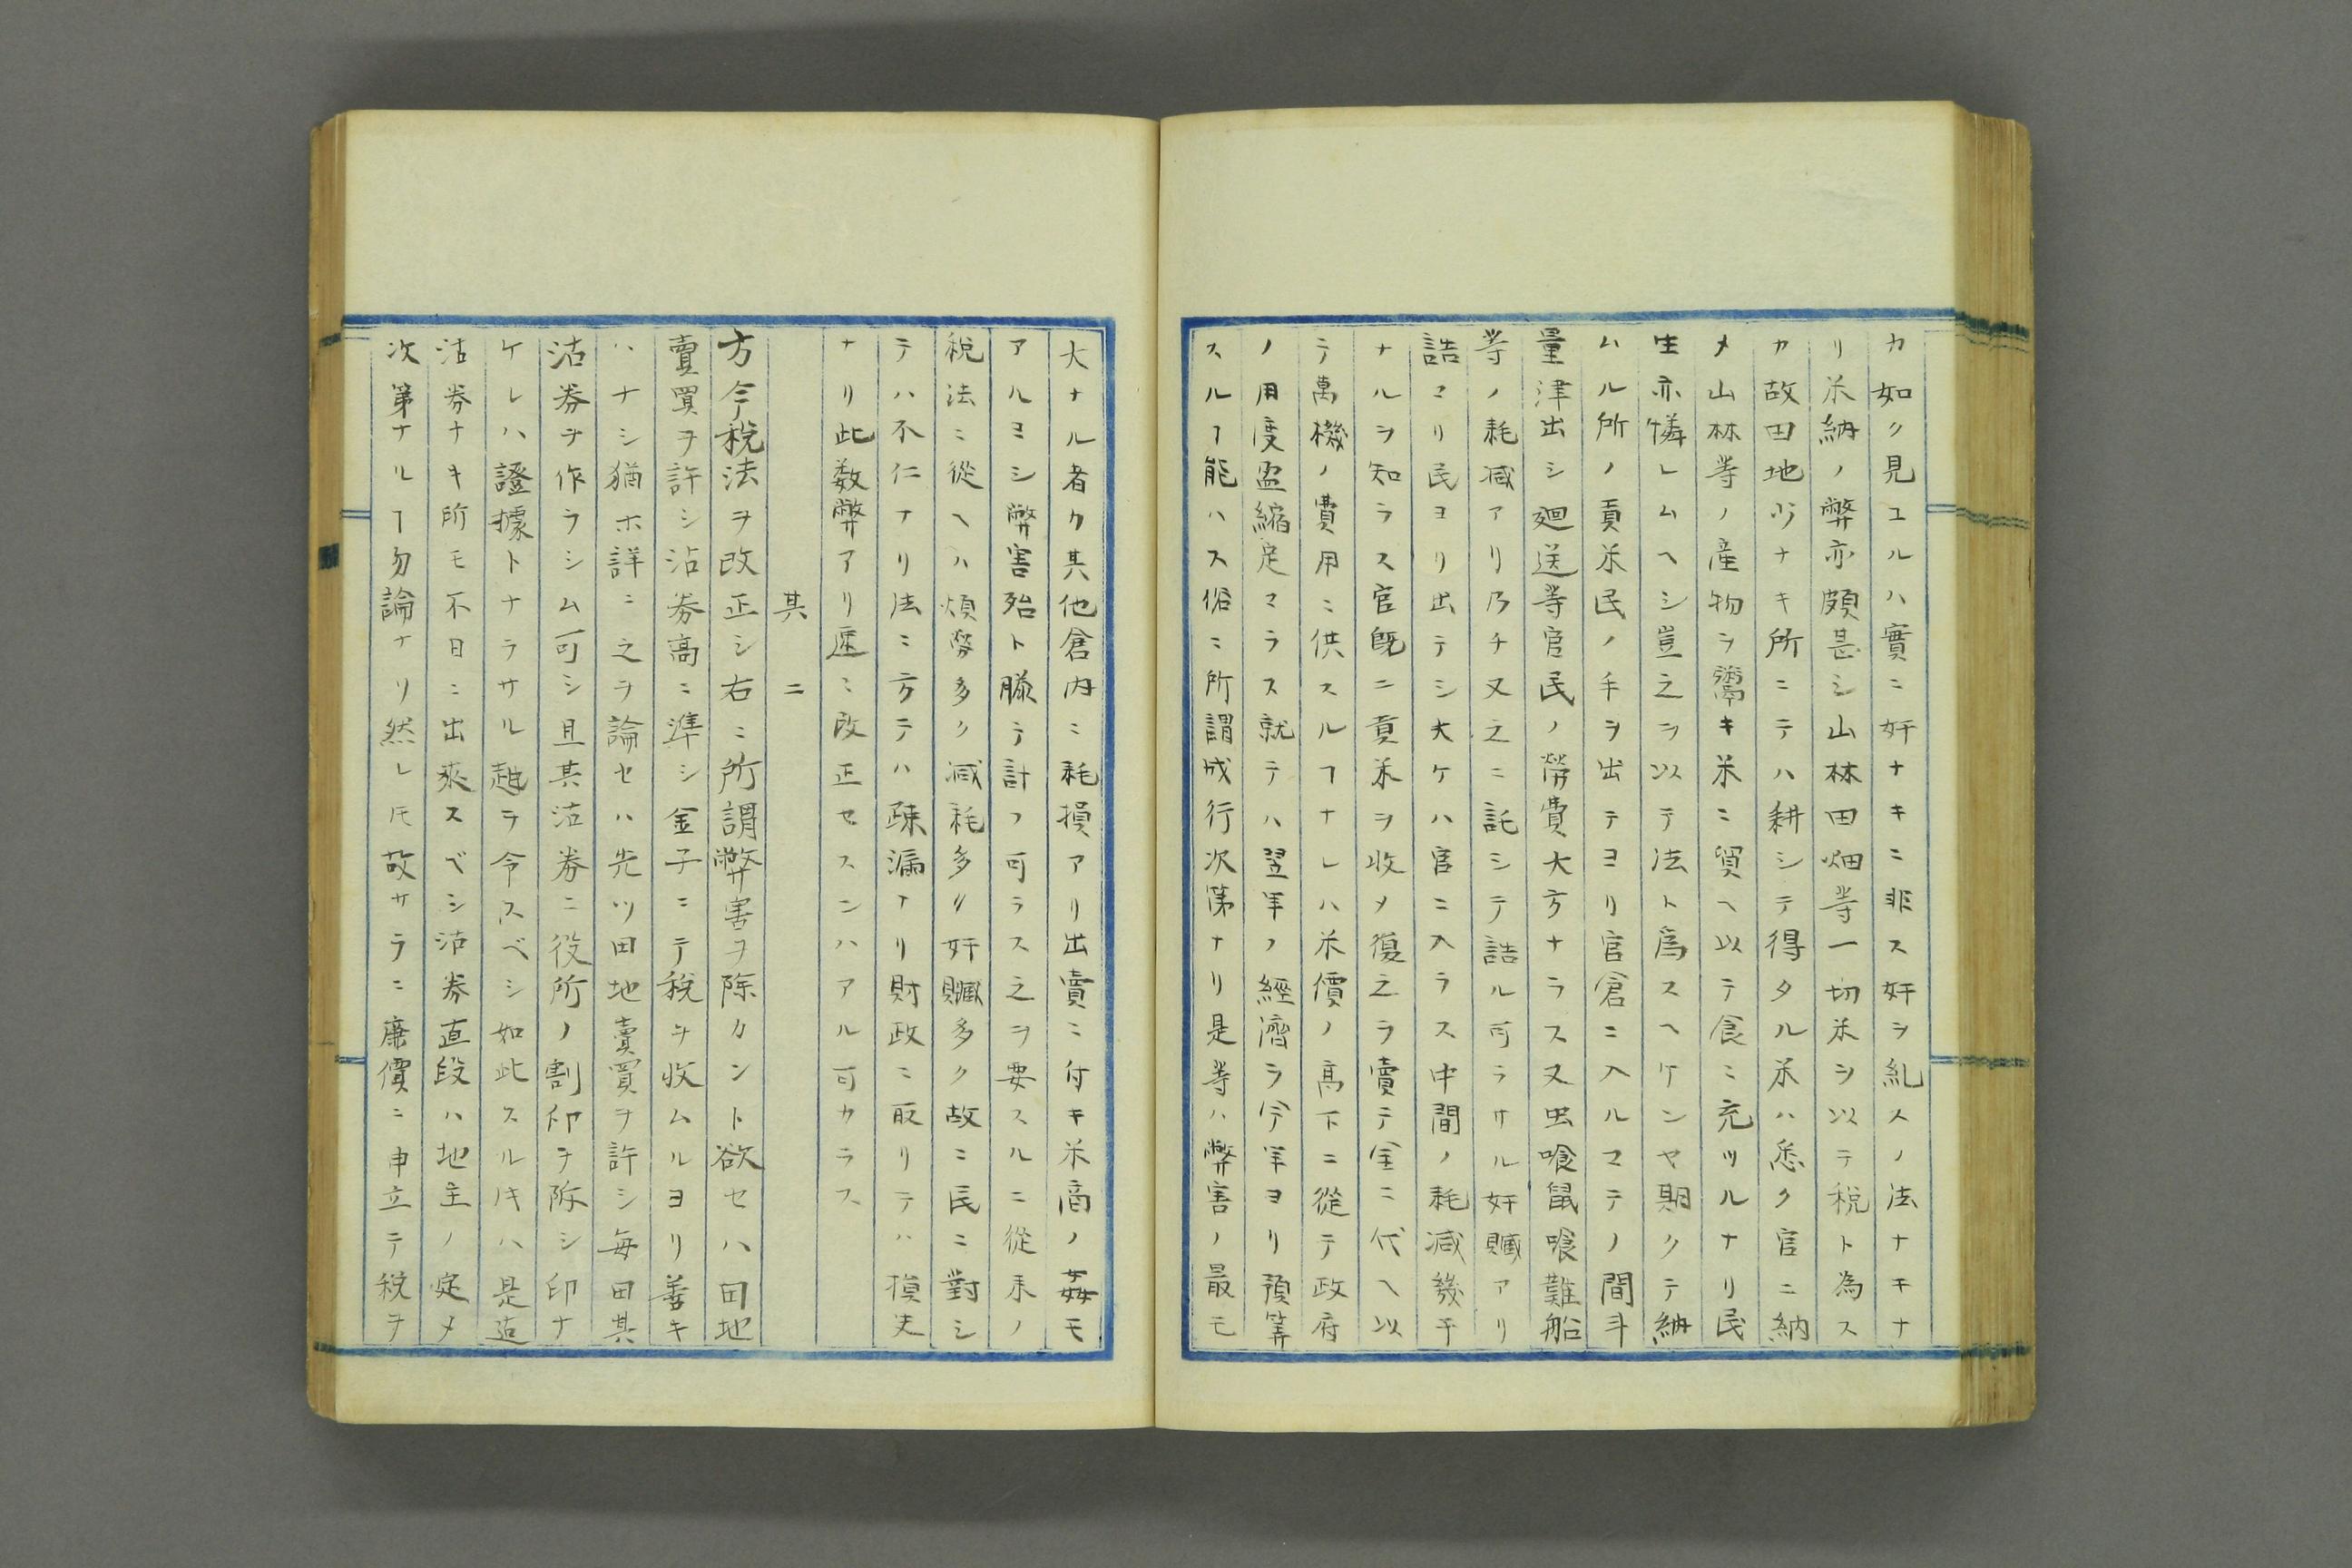 カ如ク見ユルハ實ニ奸ナキニ非ス奸ヲ糺スノ法ナキナ
リ米納ノ弊亦頗甚シ山林田畑等一切米ヲ以テ税ト為ス
カ故田地少ナキ所ニテハ耕シテ得タル米ハ悉ク官ニ納
メ山林等ノ産物ヲ鬻キ米ニ貿ヘ以テ食ニ充ツルナリ民
生亦憐レムヘシ豈之ヲ以テ法ト為スヘケンヤ期クテ納
ムル所ノ貢米民ノ手ヲ出テヨリ官倉ニ入ルマテノ間斗
量津出シ廻送等官民ノ勞費大方ナラス又虫喰鼠喰難船
等ノ耗减アリ乃チ又之ニ託シテ詰ル可ラサル奸贓アリ
詰マリ民ヨリ出テシ大ケハ官ニ入ラス中間ノ耗减幾干
ナルヲ知ラス官既ニ貢米ヲ收メ復之ヲ賣テ金ニ代ヘ以
テ萬機ノ費用ニ供スルヿナレハ米價ノ髙下ニ從テ政府
ノ用度盈縮定マラス就テハ翌年ノ經濟ヲ今年ヨリ預筭
スルヿ能ハス俗ニ所謂成行次第ナリ是等ハ弊害ノ最モ
大ナル者ク其他倉内ニ耗損アリ出賣ニ付キ米商ノ姦モ
アルヨシ弊害殆ト勝テ計フ可ラス之ヲ要スルニ從来ノ
税法ニ從ヘハ煩勞多ク减耗多ク奸贓多ク故ニ民ニ對シ
テハ不仁ナリ法ニ方テハ疎漏ナリ財政ニ取リテハ損失
ナリ此数弊アリ速ニ改正セスンハアル可カラス
其二
方今税法ヲ改正シ右ニ所謂弊害ヲ除カント欲セハ田地
賣買ヲ許シ沽券高ニ準シ金子ニテ税ヲ收ムルヨリ善キ
ハナシ猶ホ詳ニ之ヲ論セハ先ツ田地賣買ヲ許シ毎田其
沽券ヲ作ラシム可シ且其沽券ニ役所ノ割印ヲ除シ印ナ
ケレハ證據トナラサル趣ヲ令スベシ如此スルキハ是迠
沽券ナキ所モ不日ニ出來スベシ沽券直段ハ地主ノ定メ
次第ナルヿ勿論ナリ然レ𪜈故サラニ廉價ニ申立テ税ヲ